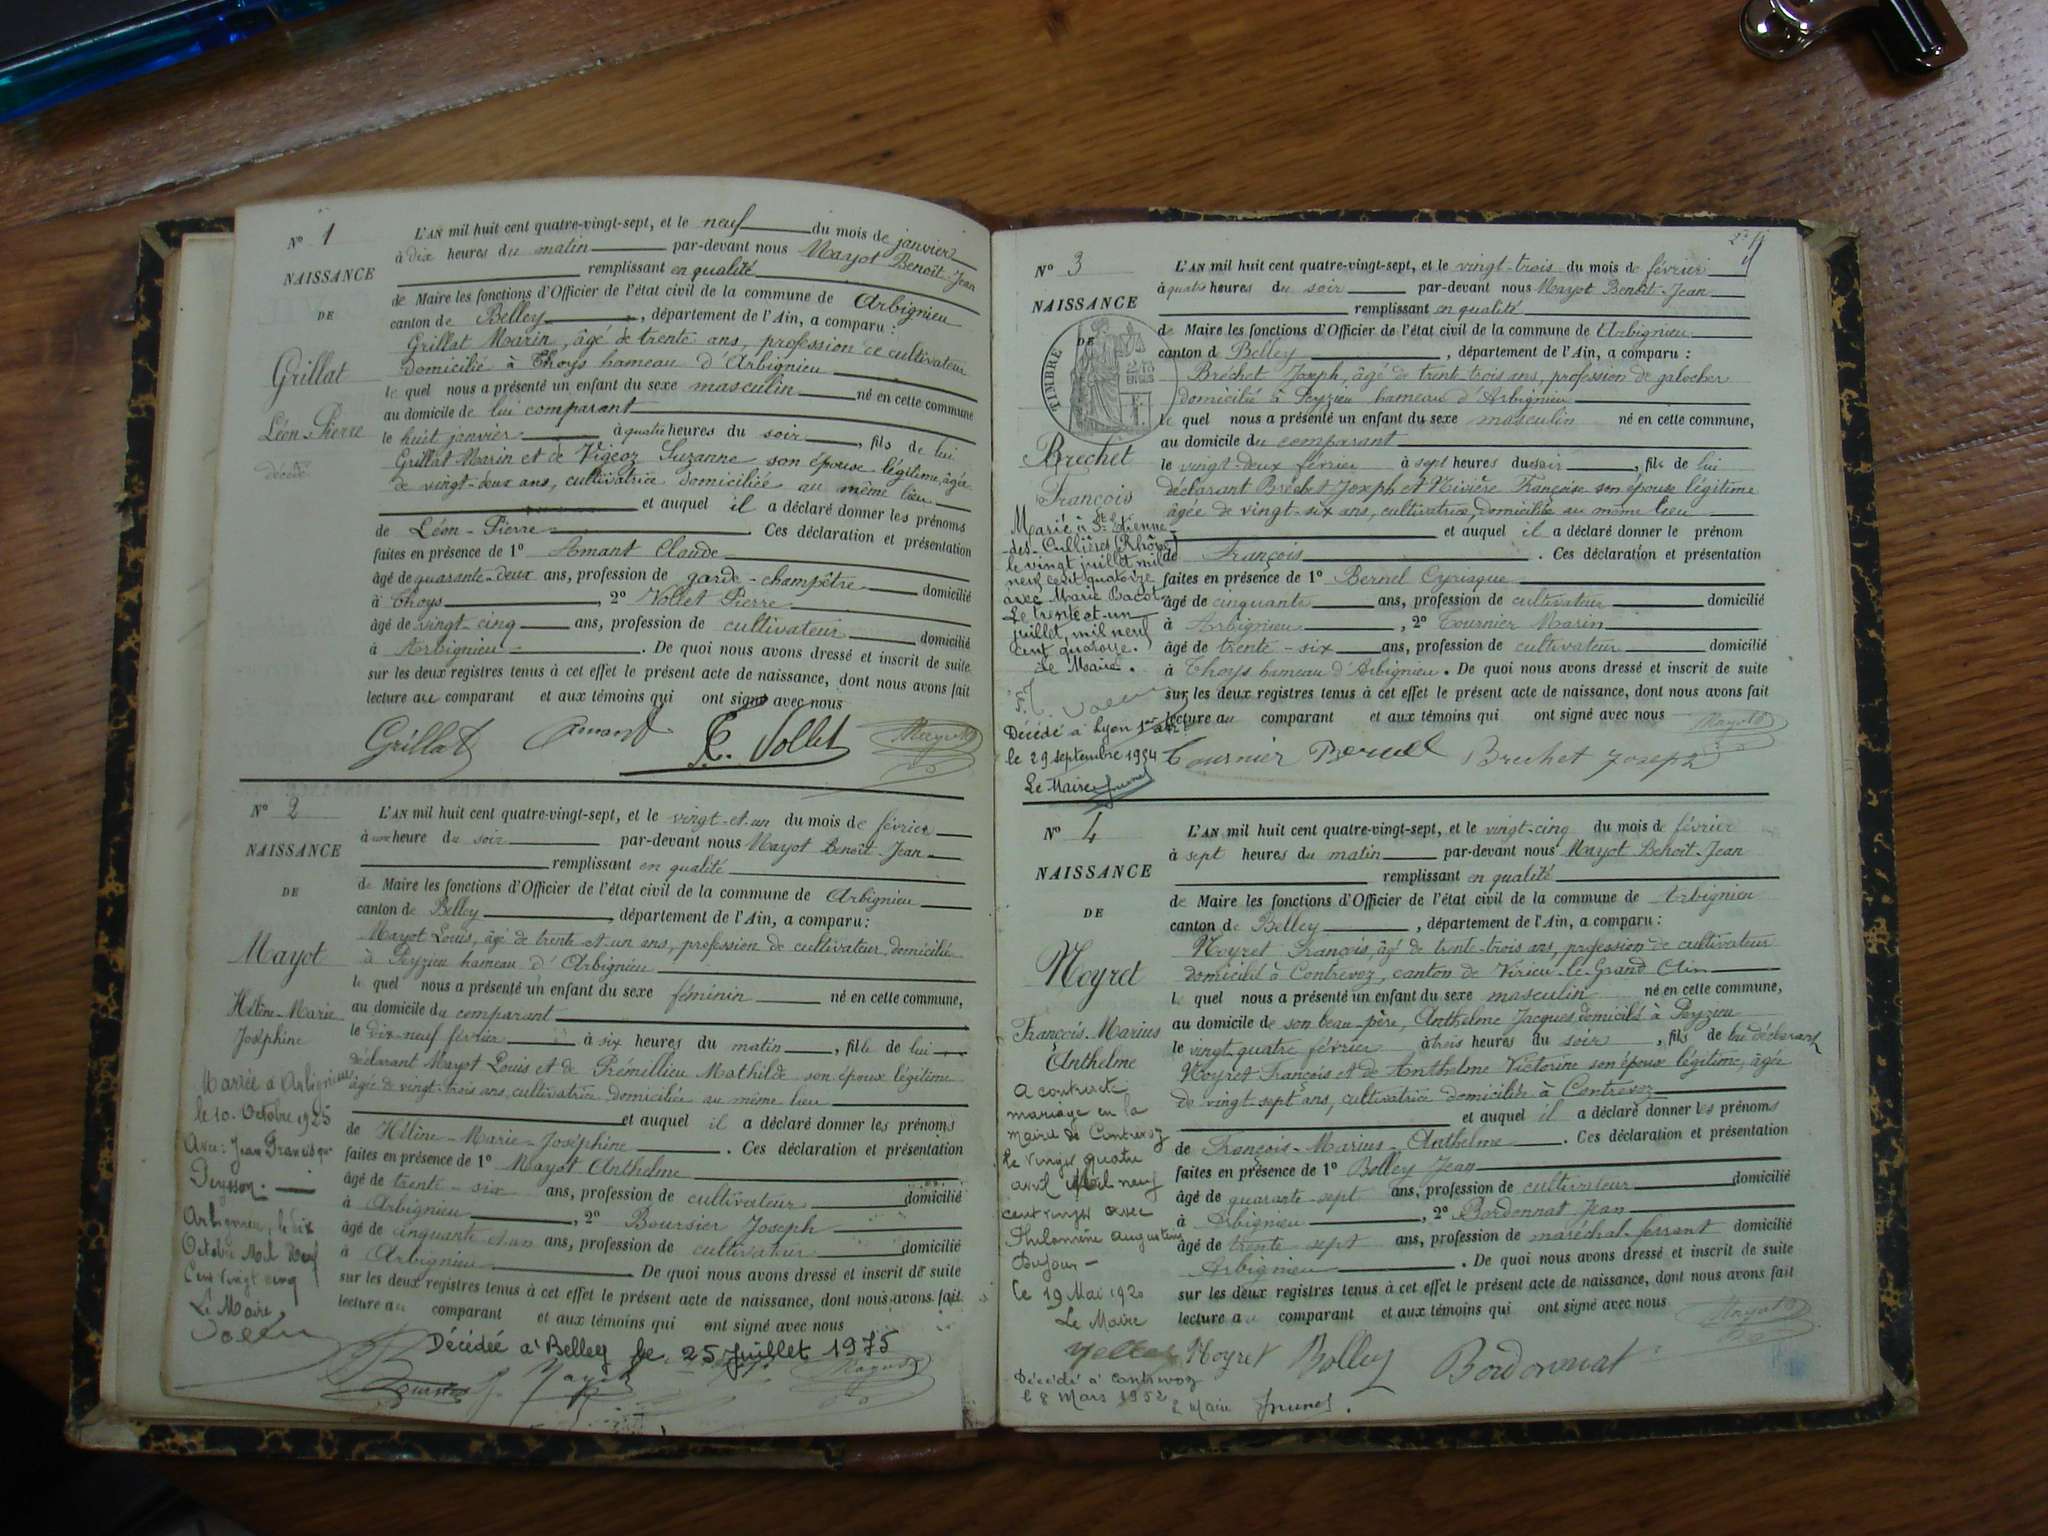 N° 1
NAISSANCE
DE
Grillat
Léon-Pierre
décédé
L'AN mil huit cent quatre-vingt-sept, et le neuf du mois de janvier
à dix heures du matin par-devant nous Mayot Benoît-Jean
remplissant en qualité
de Maire les fonctions d'Officier de l'état civil de la commune de Arbignieu
canton de Belley, département de l'Ain, a comparu :
Grillat Marin, âgé de trente ans, profession de cultivateur
domicilié à Thoys hameau d'Arbignieu
le quel nous a présenté un enfant du sexe masculin né en cette commune
au domicile de lui comparant
le huit janvier à quatre heures du soir, fils de lui
Grillat Marin et de Vigeoz Suzanne son épouse légitime, âgée
de vingt-deux ans, cultivatrice domiciliée au même lieu
et auquel il a déclaré donner les prénoms
de Léon-Pierre. Ces déclaration et présentation
faites en présence de 1° Amant Claude
âgé de quarante-deux ans, profession de garde-champêtre domicilié
à Thoys, 2° Vollet Pierre
âgé de vingt-cinq ans, profession de cultivateur domicilié
à Arbignieu. De quoi nous avons dressé et inscrit de suite
sur les deux registres tenus à cet effet le présent acte de naissance, dont nous avons fait
lecture au comparant et aux témoins qui ont signé avec nous
Grillat Amant Vollet Mayot
N° 2
NAISSANCE
DE
Mayot
Hélène-Marie
Joséphine
Mariée à Arbignieu
le 10 Octobre 1925
Avec Jean Francisque
Peysson.
Arbignieu, le dix
Octobre Mil Neuf
Cent vingt cinq
Le Maire,
L'AN mil huit cent quatre-vingt-sept, et le vingt-et-un du mois de février
à une heure du soir par-devant nous Mayot Benoît-Jean
remplissant en qualité
de Maire les fonctions d'Officier de l'état civil de la commune de Arbignieu
canton de Belley, département de l'Ain, a comparu :
Mayot Louis, âgé de trente-et-un ans, profession de cultivateur domicilié
à Peyzieu hameau d'Arbignieu
le quel nous a présenté un enfant du sexe féminin né en cette commune,
au domicile du comparant
le dix-neuf février à six heures du matin, fille de lui
déclarant Mayot Louis et de Prémellieu Mathilde son épouse légitime
âgée de vingt-trois ans, cultivatrice domiciliée au même lieu
et auquel il a déclaré donner les prénoms
de Hélène-Marie-Joséphine. Ces déclaration et présentation
faites en présence de 1° Mayot Anthelme
âgé de trente-six ans, profession de cultivateur domicilié
à Arbignieu, 2° Boursier Joseph
âgé de cinquante et un ans, profession de cultivateur domicilié
à Arbignieu. De quoi nous avons dressé et inscrit de suite
sur les deux registres tenus à cet effet le présent acte de naissance, dont nous avons fait
lecture au comparant et aux témoins qui ont signé avec nous
Décédée à Belley le 25 Juillet 1975
Mayot
N° 3
NAISSANCE
DE
TIMBRE
Brechet
François
Marié à St Etienne
des-Oullières (Rhône)
le vingt juillet mil
neuf cent quatorze
avec Marie Bacot
Le trente-et-un
juillet, mil neuf
cent quatorze.
Le Maire.
Décédé à Lyon 1er
le 29 septembre 1954
Le Maire
L'AN mil huit cent quatre-vingt-sept, et le vingt-trois du mois de février
à quatre heures du soir par-devant nous Mayot Benoît-Jean
remplissant en qualité
de Maire les fonctions d'Officier de l'état civil de la commune de Arbignieu
canton de Belley, département de l'Ain, a comparu :
Bréchet Joseph, âgé de trente-trois ans, profession de galocher
domicilié à Peyzieu hameau d'Arbignieu
le quel nous a présenté un enfant du sexe masculin né en cette commune,
au domicile du comparant
le vingt-deux février à sept heures du soir, fils de lui
déclarant Bréchet Joseph et Rivière Françoise son épouse légitime
âgée de vingt-six ans, cultivatrice, domiciliée au même lieu
et auquel il a déclaré donner le prénom
de François. Ces déclaration et présentation
faites en présence de 1° Bernel Cyriaque
âgé de cinquante ans, profession de cultivateur domicilié
à Arbignieu, 2° Tournier Marin
âgé de trente-six ans, profession de cultivateur domicilié
à Thoys hameau d'Arbignieu. De quoi nous avons dressé et inscrit de suite
sur les deux registres tenus à cet effet le présent acte de naissance, dont nous avons fait
lecture au comparant et aux témoins qui ont signé avec nous Mayot
Tournier Bernel Brechet Joseph
N° 4
NAISSANCE
DE
Noyret
François-Marius
Anthelme
A contracté
mariage en la
mairie de Contrevoz
le vingt quatre
avril Mil neuf
cent vingt avec
Philomène Augustine
Dujour
Le 19 Mai 1920
Le Maire
Décédé à Contrevoz
le 8 Mars 1952
L'AN mil huit cent quatre-vingt-sept, et le vingt-cinq du mois de février
à sept heures du matin par-devant nous Mayot Benoît-Jean
remplissant en qualité
de Maire les fonctions d'Officier de l'état civil de la commune de Arbignieu
canton de Belley, département de l'Ain, a comparu :
Noyret François, âgé de trente-trois ans, profession de cultivateur
domicilié à Contrevoz, canton de Virieu-le-Grand Ain
le quel nous a présenté un enfant du sexe masculin né en cette commune,
au domicile de son beau-père, Anthelme Jacques domicilié à Peyzieu
le vingt-quatre février à trois heures du soir, fils de lui déclarant
Noyret François et de Anthelme Victorine son épouse légitime, âgée
de vingt-sept ans, cultivatrice domiciliée à Contrevoz
et auquel il a déclaré donner les prénoms
de François-Marius-Anthelme. Ces déclaration et présentation
faites en présence de 1° Bolley Jean
âgé de quarante-sept ans, profession de cultivateur domicilié
à Arbignieu, 2° Bordonnat Jean
âgé de trente sept ans, profession de maréchal-ferrant domicilié
Arbignieu. De quoi nous avons dressé et inscrit de suite
sur les deux registres tenus à cet effet le présent acte de naissance, dont nous avons fait
lecture au comparant et aux témoins qui ont signé avec nous Mayot
Noyret Bolley Bordonnat